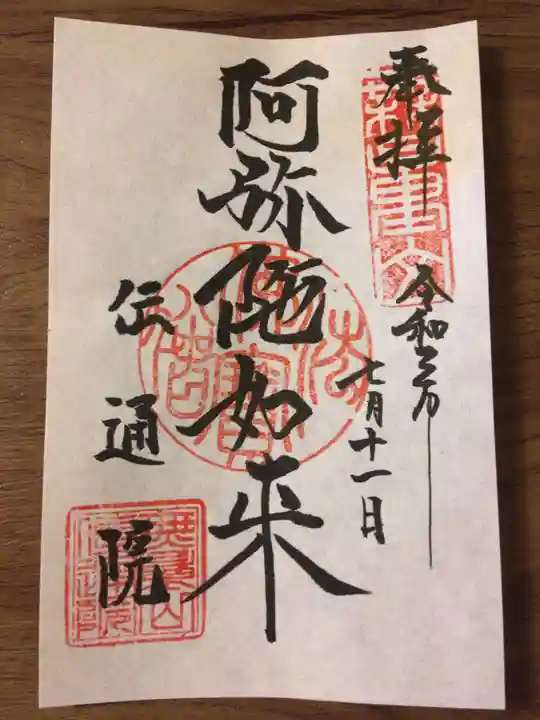 奉拝
令和三年
七月十一日
阿弥陀如来
伝通院